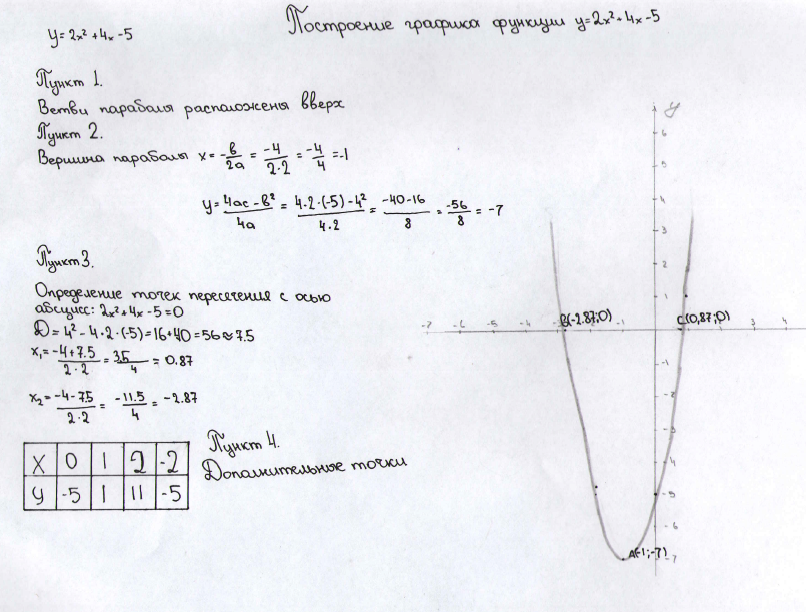 Построение графика функции y=2x²+4x-5
y=2x²+4x-5
Пункт 1.
Ветви параболя расположены вверх
Пункт 2.
Вершина параболы x=-в/2a=-4/2·2=-4/4=-1
y=4ac-в²/4a=4·2·(-5)-4²/4·2=-40-16/8=-56/8=-7
Пункт 3.
Определение точек пересечения с осью
абсцисс: 2x²+4x-5=0
D=4²-4·2·(-5)=16+40=56≈7.5
x₁=-4+7.5/2·2=3.5/4=0.87
x₂=-4-7.5/2·2=-11.5/4=-2.87
Пункт 4.
Дополнительные точки
X 0 1 2 -2
y -5 1 11 -5
y
6
5
4
3
2
1
B(-2.87;0)
C(0,87;0)
-7 -6 -5 -4 -2 -1 1 3 4
-1
-2
-3
-4
-5
-6
-7
A(-1;-7)